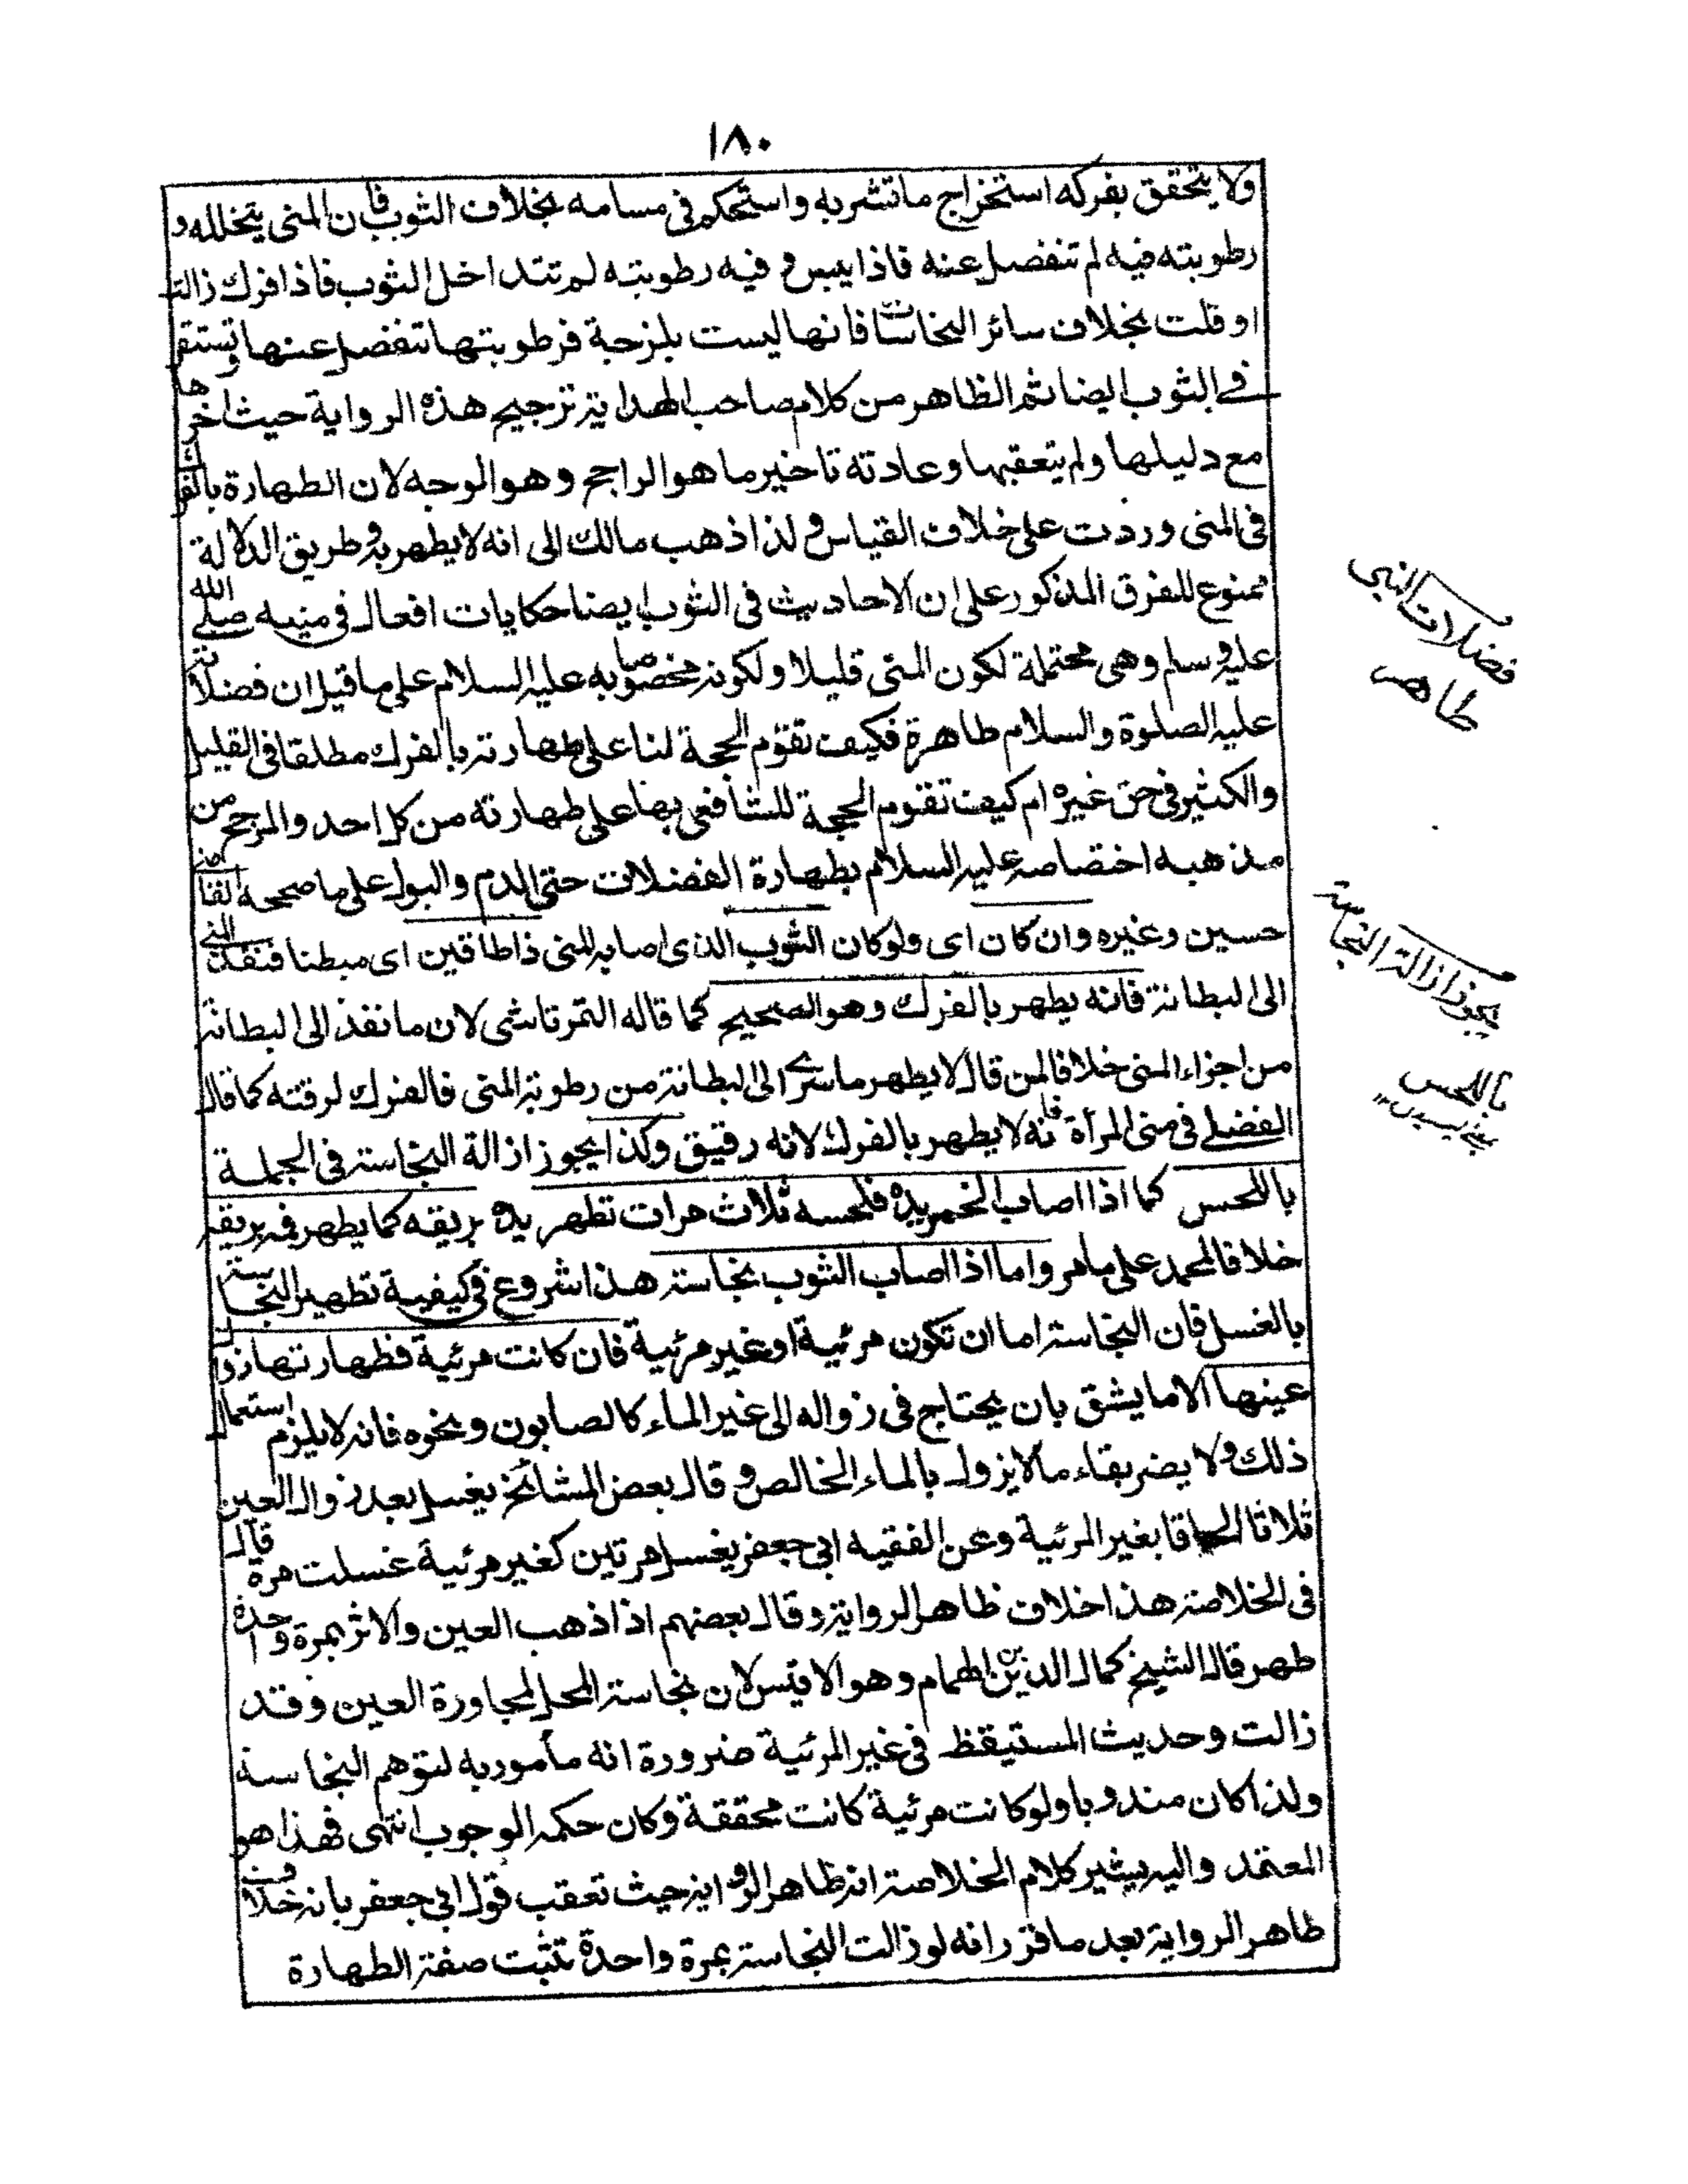 ١٨٠
ولا يتحقق بفركه استخراج ما تشربه واستحكم فى مسامه بخلاف الثوب فان المنى يتخلله و
رطوبته فيه لم تنفصل عنه فاذا يبس و فيه رطوبته لم تتداخل الثوب فاذا فرك زالت
او قلت بخلاف سائر النجاسات فانها ليست بلزجة فرطوبتها تنفصل عنها وتستقر
فى الثوب ايضا ثم الظاهر من كلام صاحب الهداية ترجيح هذه الرواية حيث اخرها
مع دليلها ولم يتعقبها وعادته تاخير ما هو الراجح وهو الوجه لان الطهارة بالفرك
فى المنى وردت على خلاف القياس و لذا ذهب مالك الى انه لا يطهر به وطريق الدلالة
ممنوع للفرق المذكور على ان الاحاديث فى الثوب ايضا حكايات افعال فى منيه صلى الله
عليه وسلم وهى محتملة لكون المنى قليلا ولكونه مخصوصا به عليه السلام على ما قيل ان فضلاته
عليه الصلوة والسلام طاهرة فكيف تقوم الحجة لنا على طهارته بالفرك مطلقا فى القليل
والكثير فى حق غيره ام كيف تقوم الحجة للشافعى بها على طهارته من كل احد والمرجح من
مذهبه اختصاصه عليه السلام بطهارة الفضلات حتى الدم والبول على ما صححه القاضى
حسين وغيره وان كان اى ولو كان الثوب الذى اصابه المنى ذا طاقين اى مبطنا فنفذ المنى
الى البطانة فانه يطهر بالفرك وهو الصحيح كما قاله التمرتاشى لان ما نفذ الى البطانة
من اجزاء المنى خلافا لمن قال لا يطهر ما سرى الى البطانة من رطوبة المنى فالفرك لرقته كما قال
الفضلى فى منى المرأة فانه لا يطهر بالفرك لانه رقيق وكذا يجوز ازالة النجاسة فى الجملة
باللحس كما اذا اصاب الخمر يده فلحسه ثلاث مرات تطهر يده بريقه كما يطهر فمه بريقه
خلافا لمحمد على ما مر واما اذا اصاب الثوب نجاسة هذا شروع فى كيفية تطهير النجاسة
بالغسل فان النجاسة اما ان تكون مرئية او غير مرئية فان كانت مرئية فطهارتها زوال
عينها الا ما يشق بان يحتاج فى زواله الى غير الماء كالصابون ونحوه فانه لا يلزم استعمال
ذلك ولا يضر بقاء ما لا يزول بالماء الخالص و قال بعض المشائخ يغسل بعد زوال العين
ثلاثا الحاقا بغير المرئية وعن الفقيه ابى جعفر يغسل مرتين كغير مرئية غسلت مرة قال
فى الخلاصة هذا خلاف ظاهر الرواية وقال بعضهم اذا ذهب العين والاثر بمرة واحدة
طهر قال الشيخ كمال الدين بن الهمام وهو الاقيس لان نجاسة المحل لمجاورة العين وقد
زالت وحديث المستيقظ فى غير المرئية ضرورة انه مأمور به لتوهم النجاسة
ولذا كان مندوبا ولو كانت مرئية كانت محققة وكان حكمه الوجوب انتهى فهذا هو
المعتمد واليه يشير كلام الخلاصة انه ظاهر الرواية حيث تعقب قول ابى جعفر بانه خلاف
ظاهر الرواية بعد ما قرر انه لو زالت النجاسة بمرة واحدة تثبت صفة الطهارة
فضلات النبى
طاهر
يجوز ازالة النجاسة
باللحس